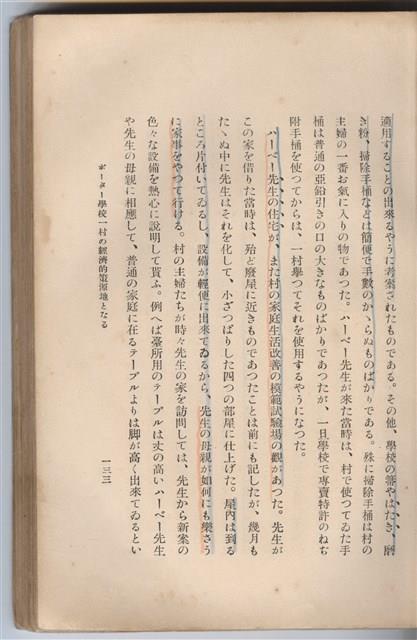 適用することの出來るやうに考案されたものである。その他、學校の箒やはたき、磨
き粉、掃除手桶などは簡便で手數のかゝらぬものばかりである。殊に掃除手桶は村の
主婦の一番お氣に入りの物であつた。ハーベー先生が來た當時は、村で使つてゐた手
桶は普通の亞鉛引きの口の大きなものばかりであつたが、一旦學校で專賣特許のねぢ
附手桶を使つてからは、一村擧つてそれを使用するやうになつた。
ハーベー先生の住宅が、また村の家庭生活改善の模範試驗場の觀があつた。先生が
この家を借りた當時は、殆ど廢屋に近きものであつたことは前にも記したが、幾月も
たゝぬ中に先生はそれを化して、小ざつぱりした四つの部屋に仕上げた。屋内は到る
ところ片付いてゐるし、設備が輕便に出來てゐるから、先生の母親が如何にも樂さう
に家事をやつて行ける。村の主婦たちが時々先生の家を訪問しては、先生から新案の
色々な設備を熱心に說明して貰ふ。例へば臺所用のテーブルは丈の高いハーベー先生
や先生の母親に相應して、普通の家庭に在るテーブルよりは脚が高く出來てゐるとい
ポーター學校一村の經濟的策源地となる
一三三